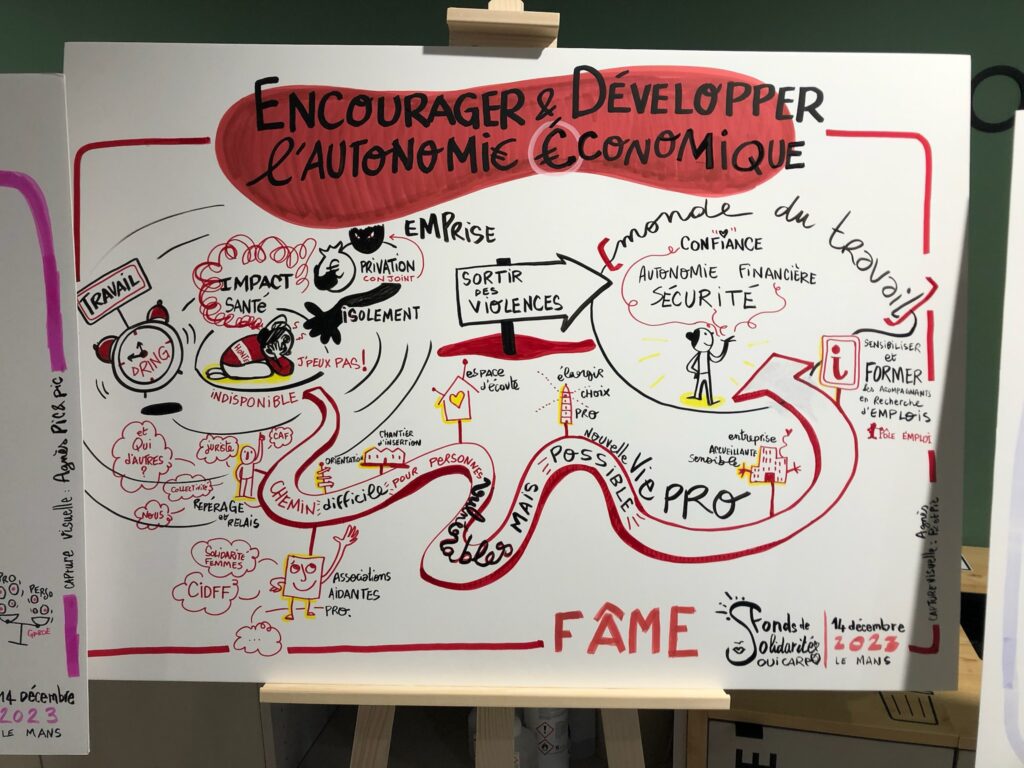 ENCOURAGER & DÉVELOPPER
l'AUTONOMI€ €CONOMIQUE
TRAVAIL
DRING
IMPACT
SANTÉ
HONTE
J'PEUX PAS!
INDISPONIBLE
EMPRISE
PRIVATION
CONJOINT
ISOLEMENT
SORTIR
DES
VIOLENCES
monde du travail
CONFIANCE
AUTONOMIE FINANCIÈRE
SÉCURITÉ
i
SENSIBILISER
et
FORMER
les ACOMPAGNANTS
en Recherche
d'EMPLOIS
PÔLE EMPLOI
espace
d'écoute
élargir
choix
PRO
entreprise
ACCUEILLANTE
sensible
CHANTIER
d'INSERTION
ORIENTATION
et
QUI
D'AUTRES
?
JURISTE
CAF
COLLECTIVITÉ
NOUS
REPÉRAGE
et RELAIS
CHEMIN difficile POUR PERSONNES vulnérables MAIS POSSIBLE
NOUVELLE Vie PRO
SOLIDARITÉ
FEMMES
CIDFF
...
ASSOCIATIONS
AIDANTES
PRO.
FÂME
Fonds de
Solidarité
OUI CARE
14 décembre
2023
LE MANS
CAPTURE VISUELLE: Agnès
PicEtPic
CAPTURE VISUELLE: Agnès Pic & pic
PRO
PERSO
GARDE
14 DÉCEMBRE
2023
LE MANS